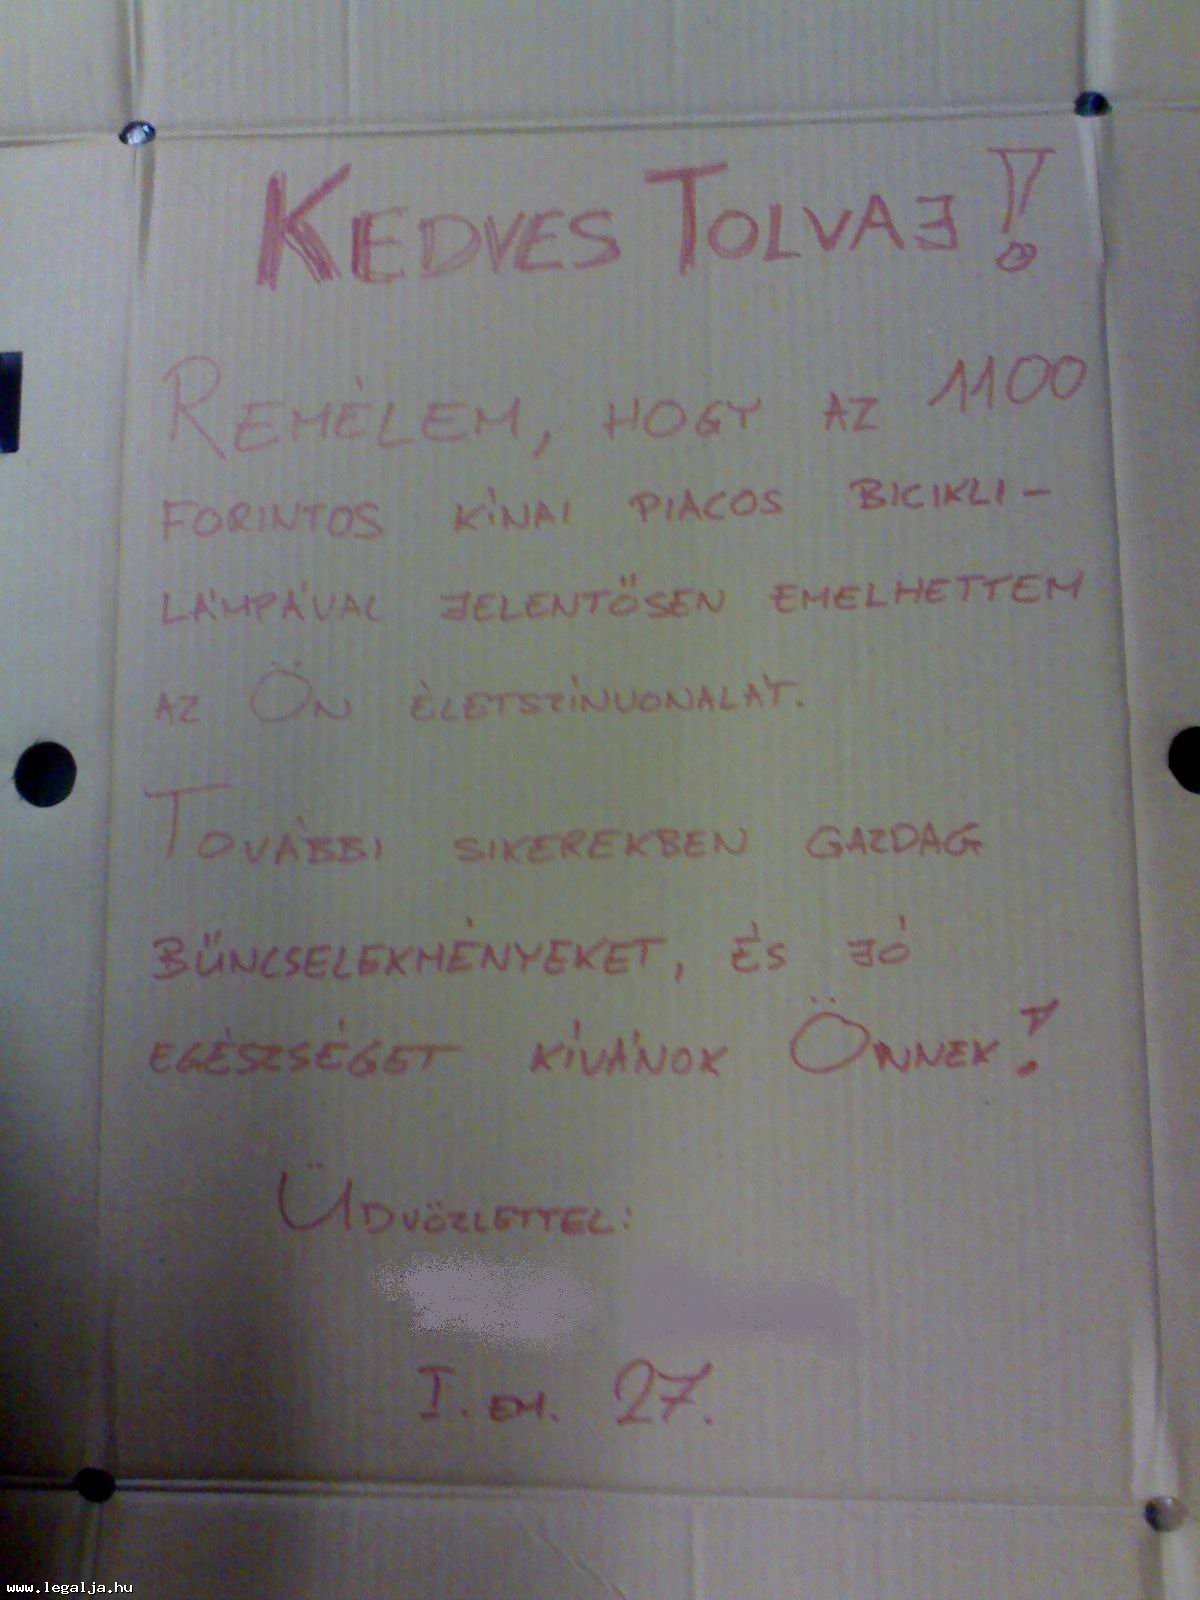 KEDVES TOLVAJ!
REMÉLEM, HOGY AZ 1100
FORINTOS KÍNAI PIACOS BICIKLI-
LÁMPÁVAL JELENTŐSEN EMELHETTEM
AZ ÖN ÉLETSZÍNVONALÁT.
TOVÁBBI SIKEREKBEN GAZDAG
BŰNCSELEKMÉNYEKET, ÉS JÓ
EGÉSZSÉGET KÍVÁNOK ÖNNEK!
ÜDVÖZLETTEL:
I. EM. 27.
www.legalja.hu